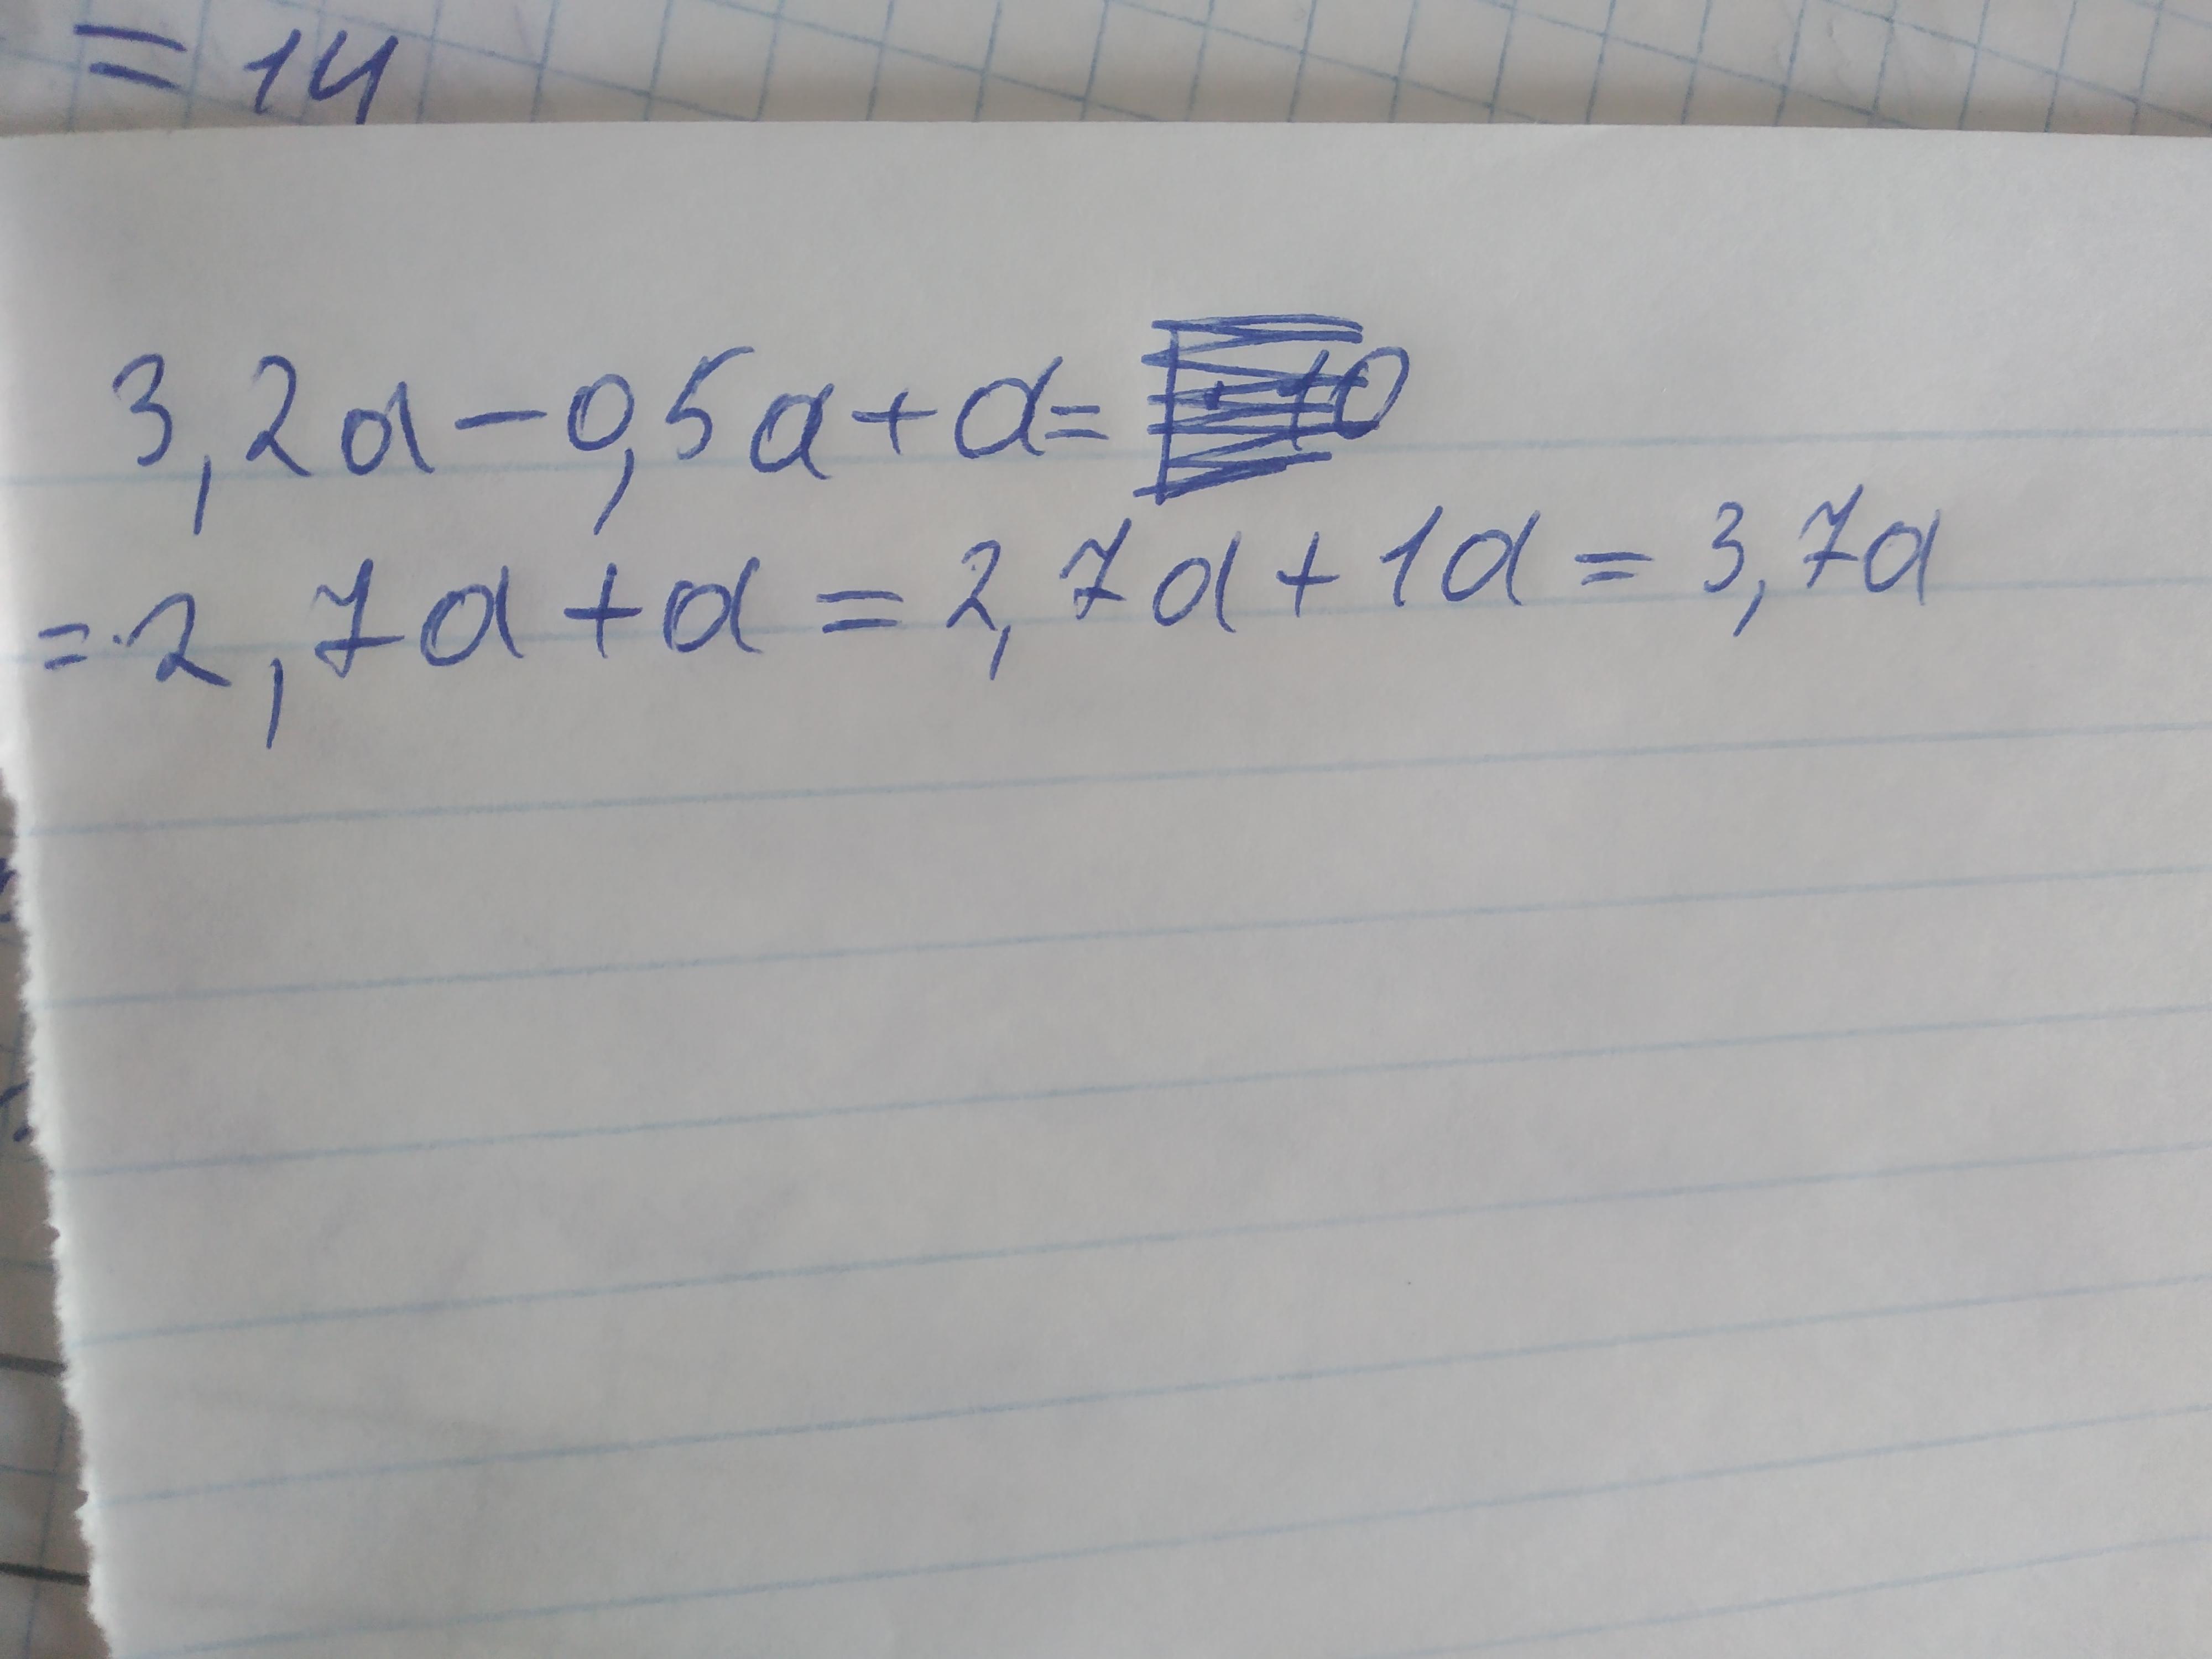 = 14
3,2a - 0,5a + a =
= 2,7a + a = 2,7a + 1a = 3,7a